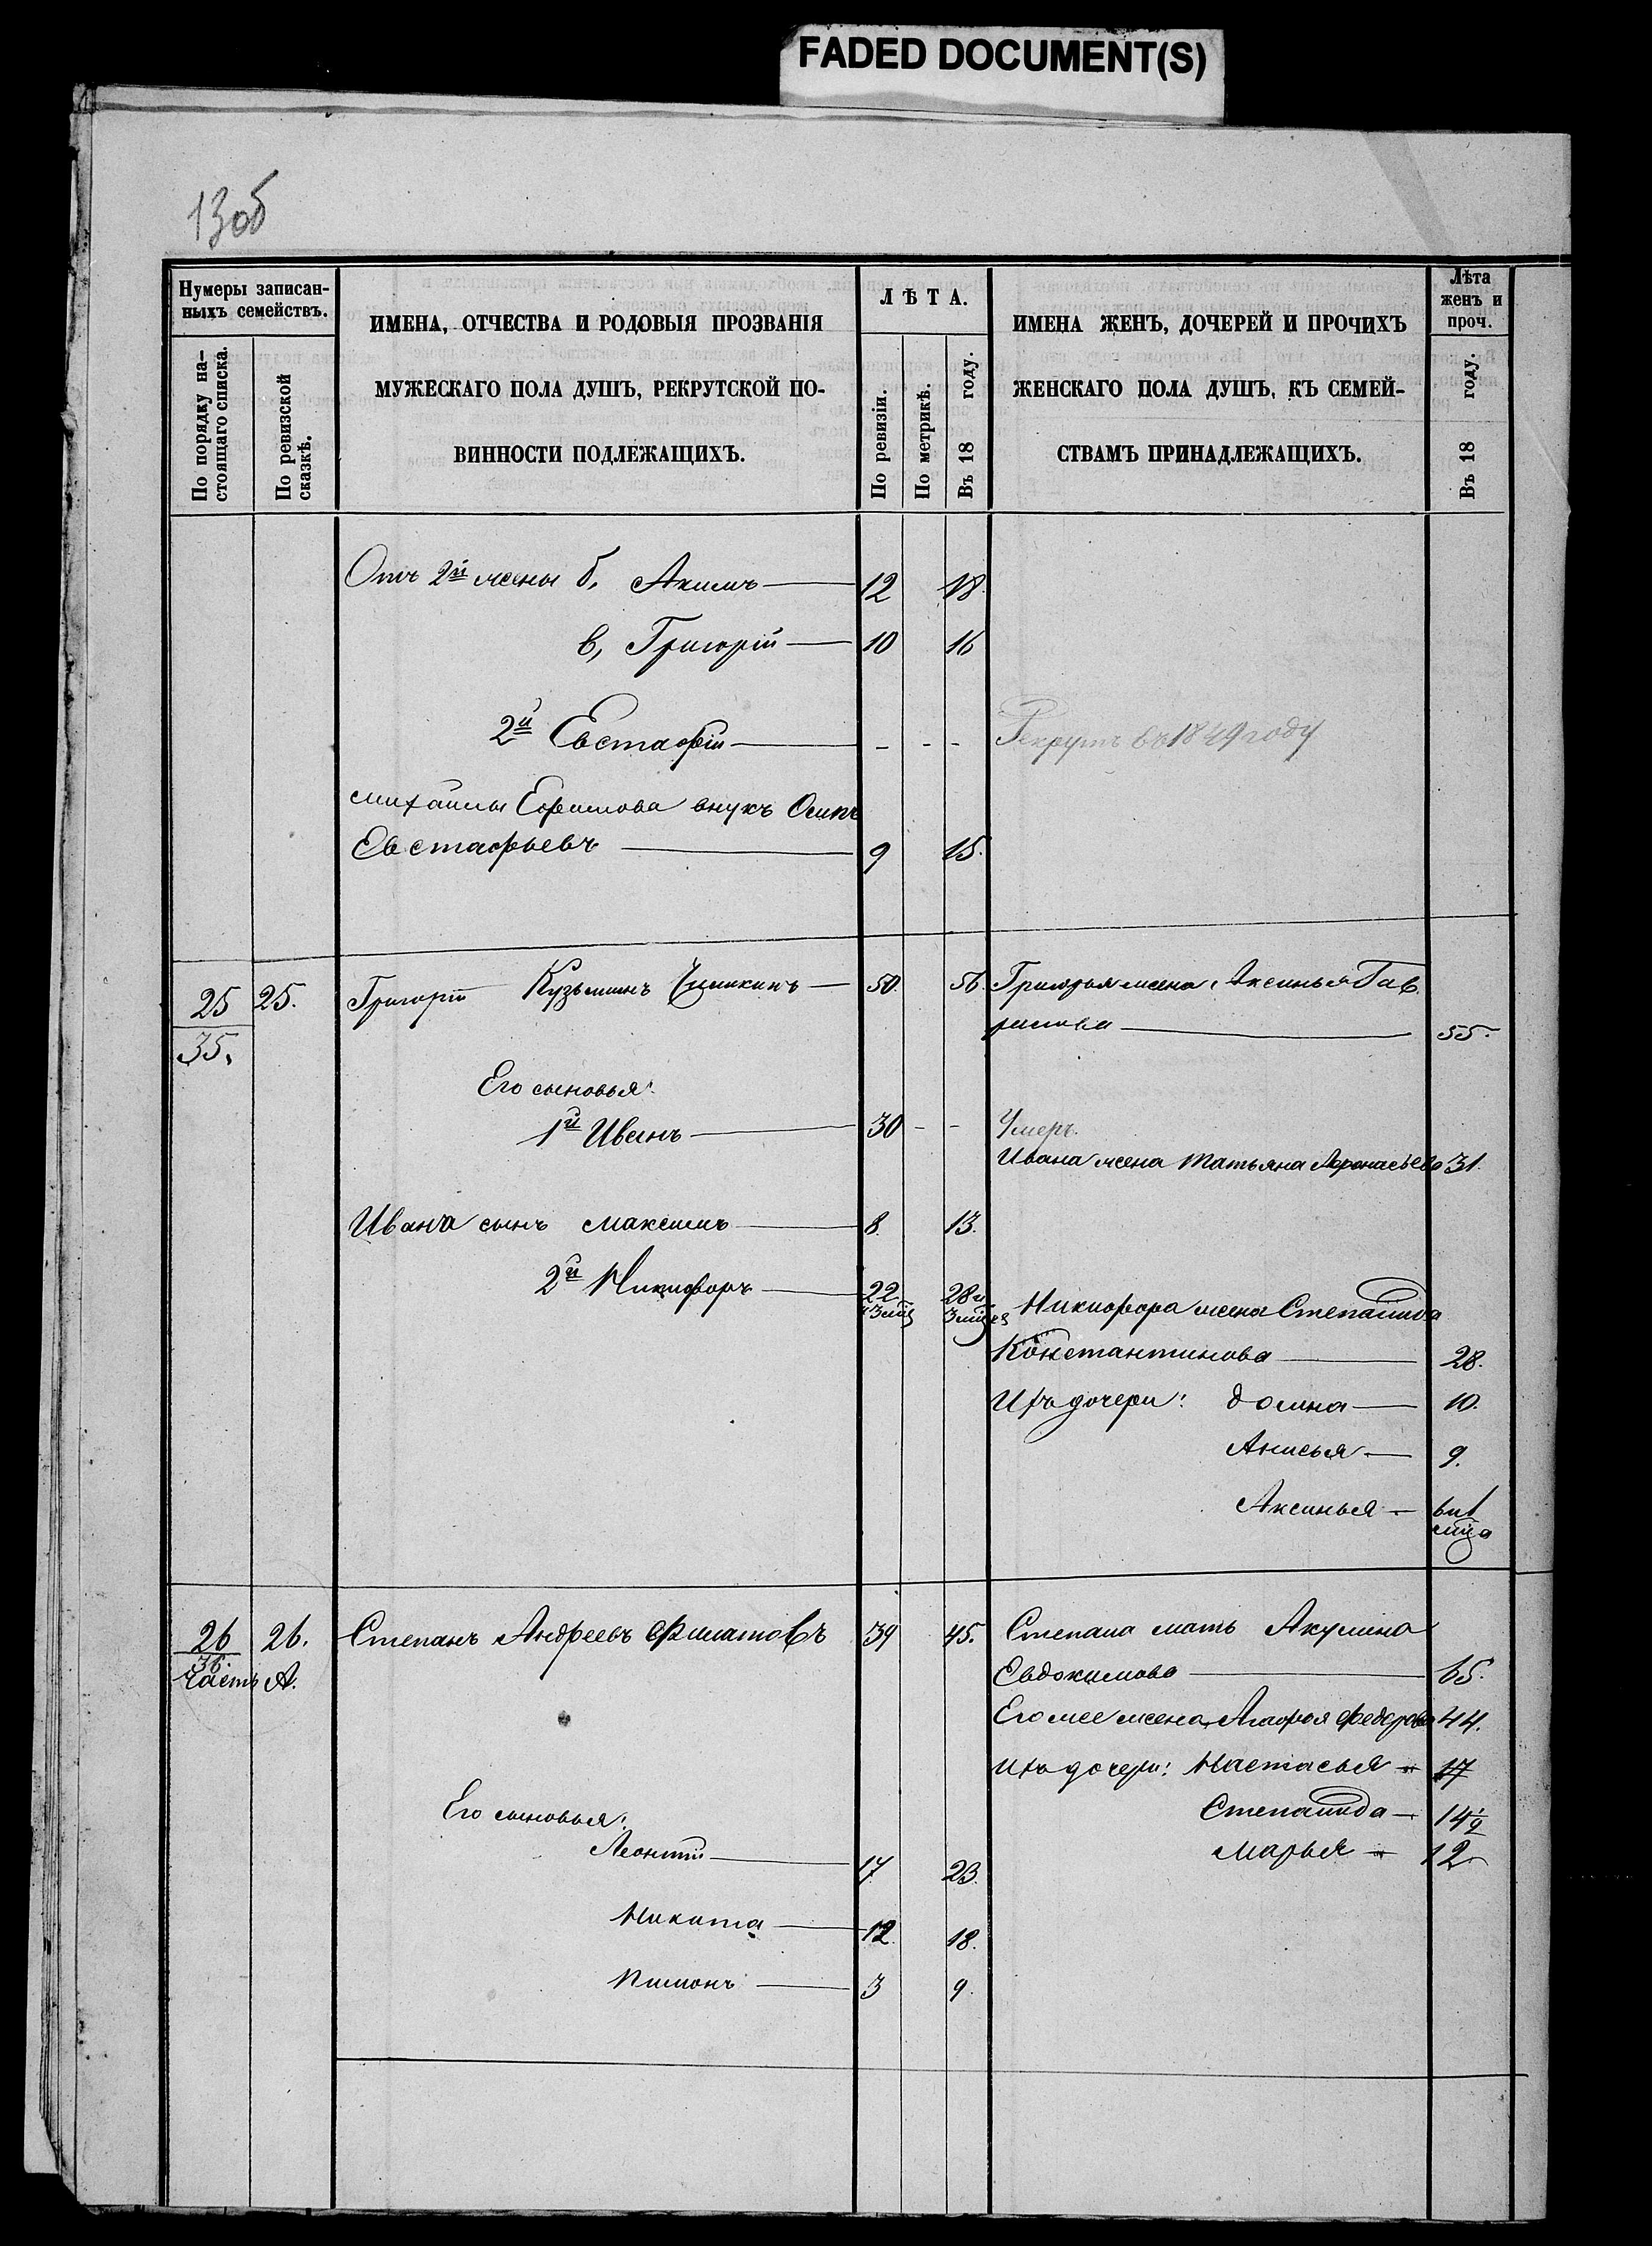 FADED DOCUMENT(S)
13об
Нумеры записан-
ныхъ семействъ.
По порядку на-
стоящаго списка.
По ревизской
сказкѣ.
ИМЕНА, ОТЧЕСТВА И РОДОВЫЯ ПРОЗВАНІЯ
МУЖЕСКАГО ПОЛА ДУШЪ, РЕКРУТСКОЙ ПО-
ВИННОСТИ ПОДЛЕЖАЩИХЪ.
ЛѢТА.
По ревизіи.
По метрикѣ.
Въ 18 году.
ИМЕНА ЖЕНЪ, ДОЧЕРЕЙ И ПРОЧИХЪ
ЖЕНСКАГО ПОЛА ДУШЪ, КЪ СЕМЕЙ-
СТВАМЪ ПРИНАДЛЕЖАЩИХЪ.
Лѣта
женъ и
проч.
Въ 18 году.
Отъ 2й жены б, Акимъ — 12 18.
в, Григорій — 10 16
2й Евстафій — - - - Рекрутъ въ 1849 году
Михайлы Ефимова внукъ Осипъ
Евстафьевъ — 9 15.
25 25. Григорій Кузьминъ — 50. 56. Григорья жена Аксинья Гав
рилова — 55.
35.
Его сыновья:
1й Иванъ — 30 - - Умеръ.
Ивана жена Татьяна Афонасьева 31.
Ивана сынъ Максимъ — 8. 13.
2й Никифоръ — 22 28 и
3 мѣс 3 мѣс Никифора жена Степанида
Константинова — 28.
Ихъ дочери: Домна — 10.
Анисья — 9.
Аксинья — 6и1
мѣса
26 26. Степанъ Андреевъ Филатовъ 39 45. Степана мать Акулина
36.
часть А. Евдокимова — 65.
Его же жена Агафья Федорова 44.
Ихъ дочери: Настасья — 17
Его сыновья: Степанида — 14½
Леонтій — 17 23. Марья — 12
Никита — 12 18.
Пимонъ — 3 9.